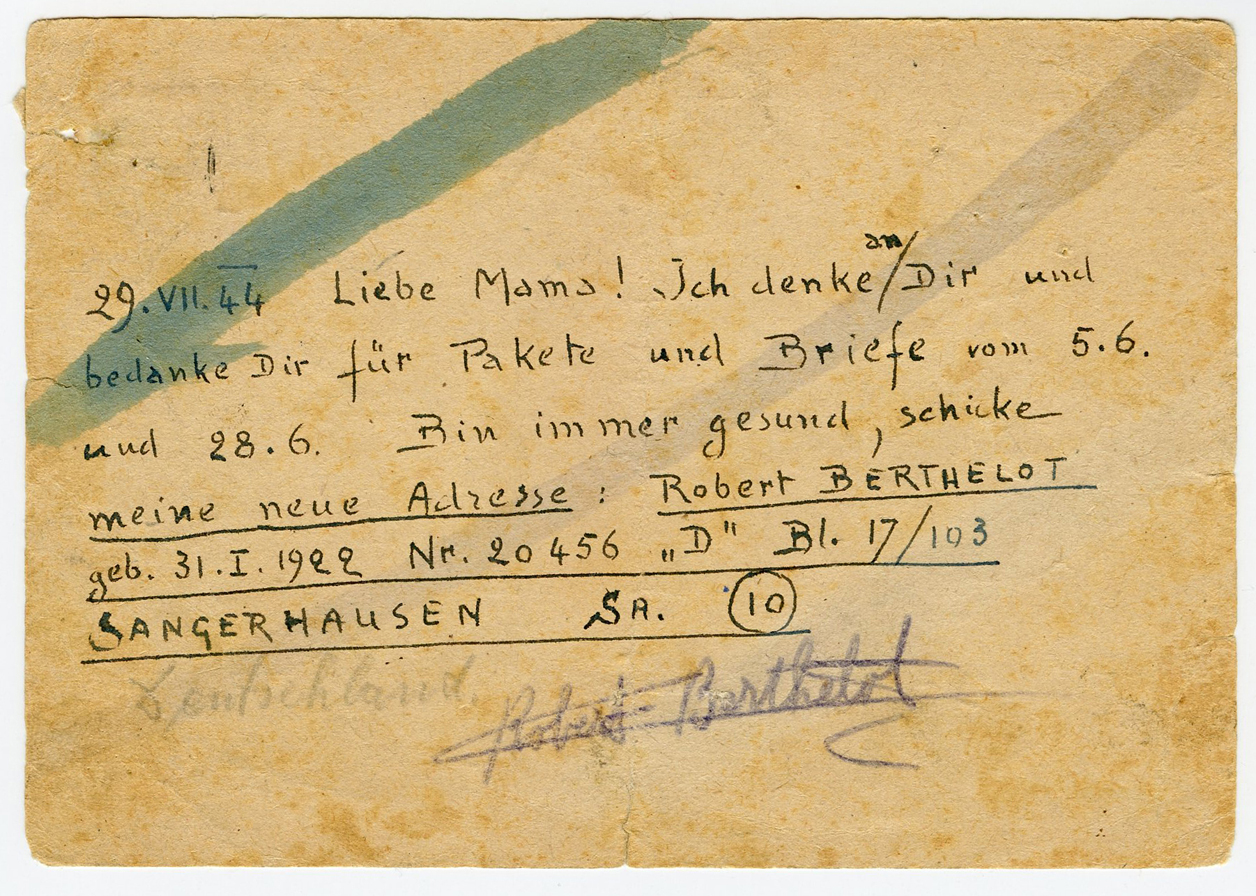 29.VII.44 Liebe Mama! Ich denke an/Dir und
bedanke Dir für Pakete und Briefe vom 5.6.
und 28.6. Bin immer gesund, schicke
meine neue Adresse: Robert BERTHELOT
geb. 31.I.1922 Nr. 20456 „D" Bl. 17/103
SANGERHAUSEN SA. 10
Deutschland.
Robert Berthelot